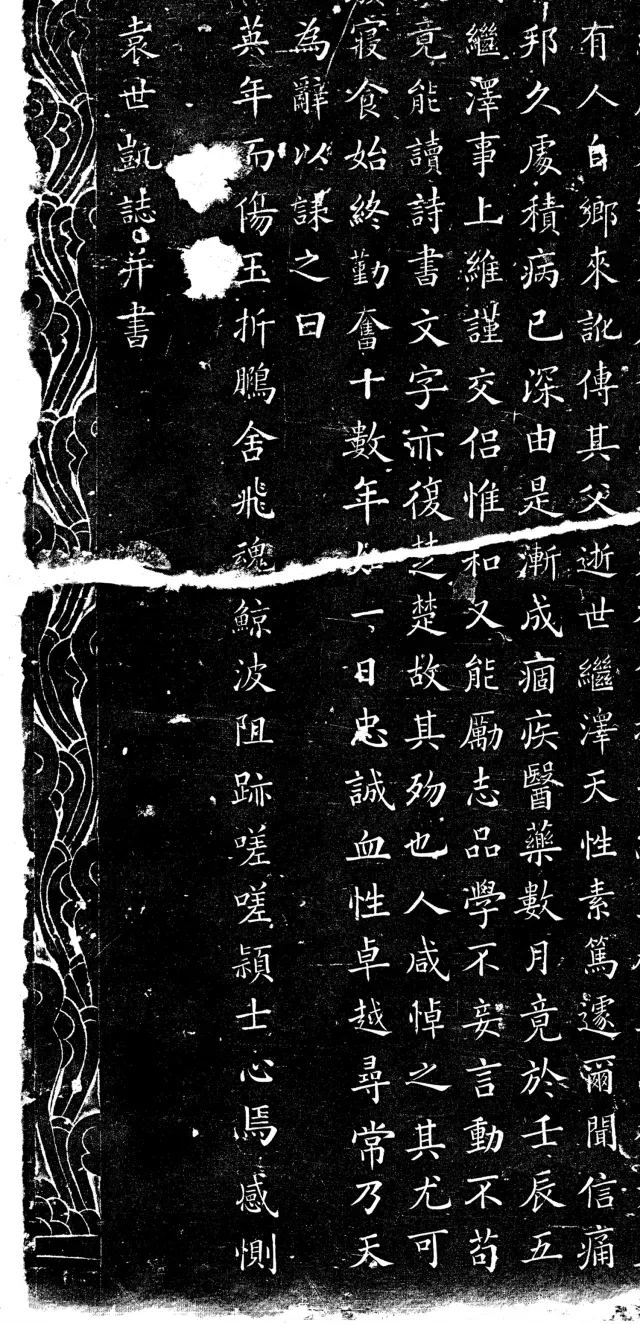 有人自鄉來訛傳其父逝世繼澤天性素篤遽爾聞信痛
邦久處積病已深由是漸成痼疾醫藥數月竟於壬辰五
繼澤事上維謹交侶惟和又能勵志品學不妄言動不苟
竟能讀詩書文字亦復楚楚故其歿也人咸悼之其尤可
寢食始終勤奮十數年如一日忠誠血性卓越尋常乃天
為辭以誄之曰
英年而傷玉折鵬舍飛魂鯨波阻跡嗟嗟穎士心焉感惻
袁世凱誌并書